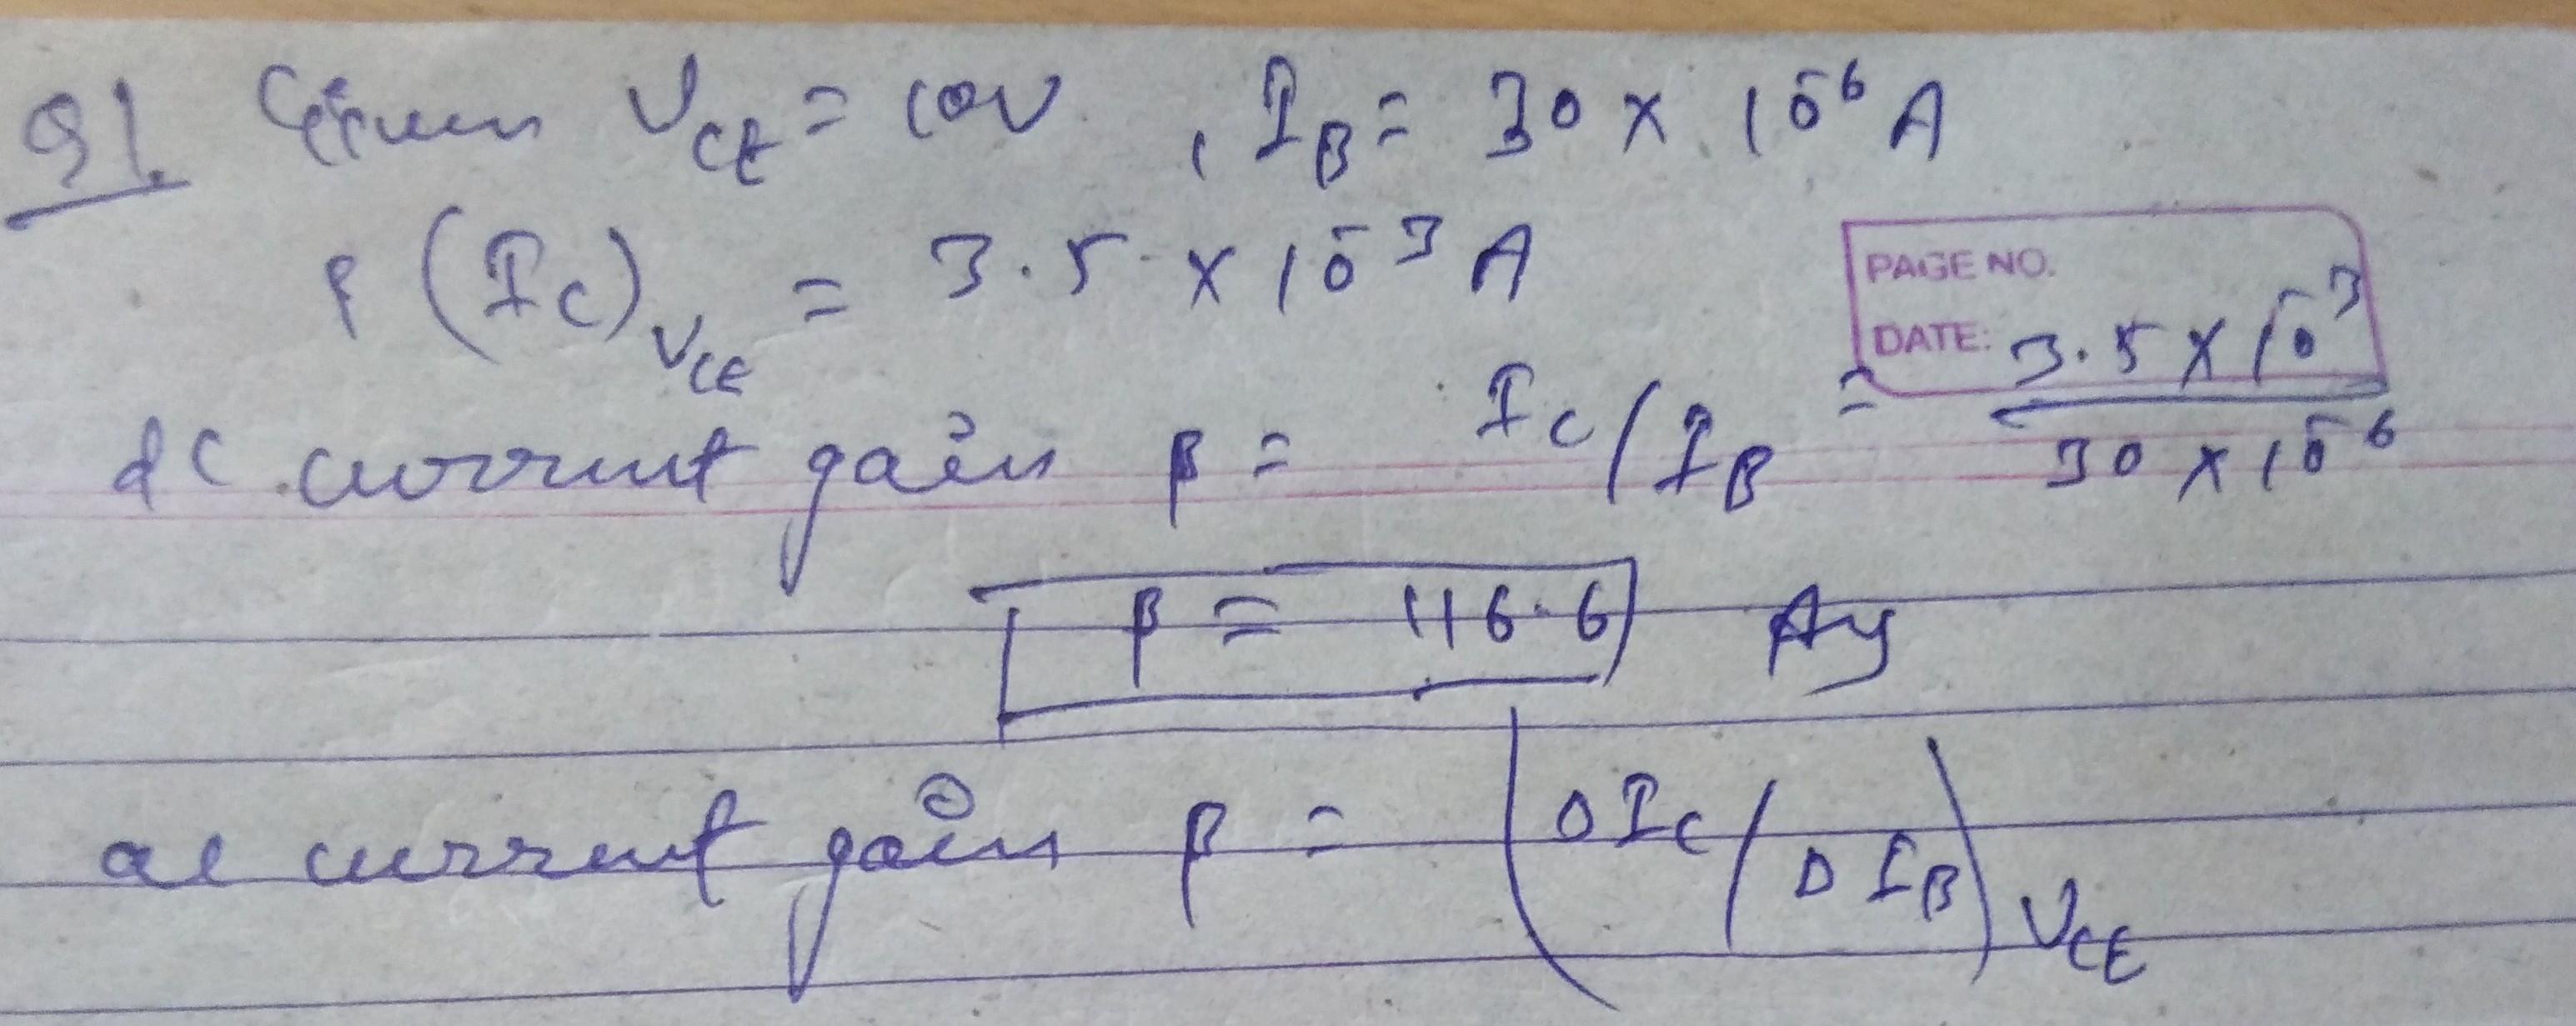 Q1. Given VCE = 10V , IB = 30 × 10⁻⁶ A
& (IC)VCE = 3.5 × 10⁻³ A
PAGE NO.
DATE:
dc current gain β = IC/IB = 3.5 × 10⁻³ / 30 × 10⁻⁶
β = 116.6
ac current gain β = (ΔIC/ΔIB)VCE